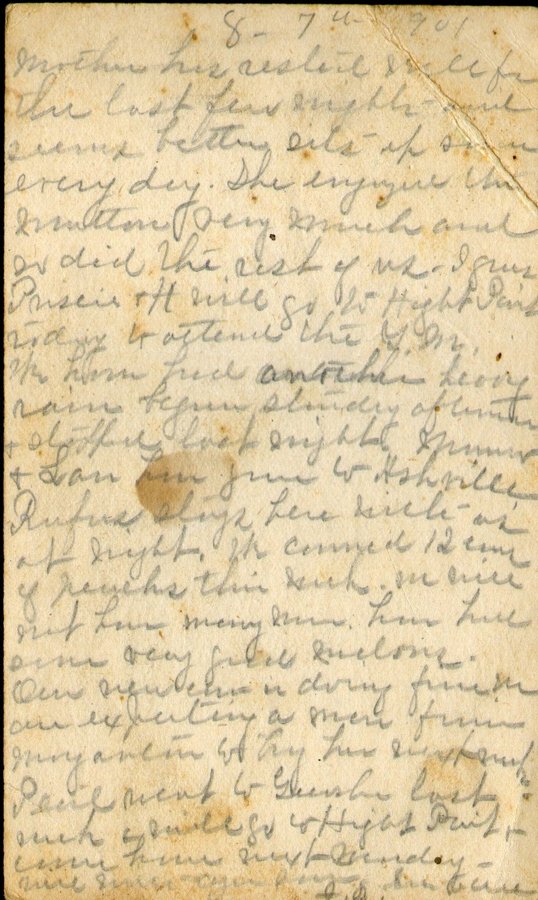 8 - 7th 1901
Mother has rested well for
the last few nights and
seems better sits up some
every day. She enjoyed the
mutton very much and
so did the rest of us - I guess
& H will go to High Point
today to attend the Y. M.
We have had another heavy
rain begun Sunday afternoon
& stopped last night.
& have gone to Ashville
Rufus stays here with us
at night. We canned 12 cans
of peaches this week. We will
not have many more. have had
some very good melons.
Our new cow is doing fine we
are expecting a man from
Morganton to buy her next week
went to last
week & will go to High Point &
come home next Sunday -